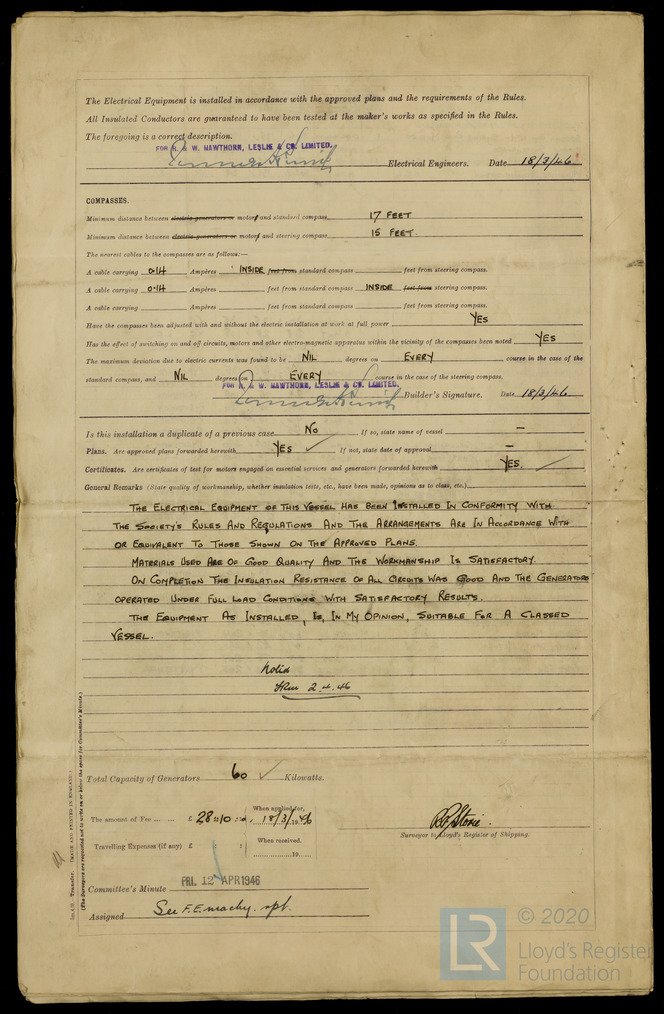 The Electrical Equipment is installed in accordance with the approved plans and the requirements of the Rules.
All Insulated Conductors are guaranteed to have been tested at the maker's works as specified in the Rules.
The foregoing is a correct description.
FOR R. & W. HAWTHORN, LESLIE & CO. LIMITED.
Electrical Engineers. Date 18/3/46
COMPASSES.
Minimum distance between electric generators or motors and standard compass 17 FEET
Minimum distance between electric generators or motors and steering compass 15 FEET.
The nearest cables to the compasses are as follows:—
A cable carrying 0.14 Ampères INSIDE feet from standard compass feet from steering compass.
A cable carrying 0.14 Ampères feet from standard compass INSIDE feet from steering compass.
A cable carrying Ampères feet from standard compass feet from steering compass.
Have the compasses been adjusted with and without the electric installation at work at full power YES
Has the effect of switching on and off circuits, motors and other electro-magnetic apparatus within the vicinity of the compasses been noted YES
The maximum deviation due to electric currents was found to be NIL degrees on EVERY course in the case of the
standard compass, and NIL degrees on EVERY course in the case of the steering compass.
FOR R. & W. HAWTHORN, LESLIE & CO. LIMITED.
Builder's Signature. Date 18/3/46
Is this installation a duplicate of a previous case NO If so, state name of vessel —
Plans. Are approved plans forwarded herewith YES ✓ If not, state date of approval —
Certificates. Are certificates of test for motors engaged on essential services and generators forwarded herewith YES. ✓
General Remarks (State quality of workmanship, whether insulation tests, etc., have been made, opinions as to class, etc.)
THE ELECTRICAL EQUIPMENT OF THIS VESSEL HAS BEEN INSTALLED IN CONFORMITY WITH
THE SOCIETY'S RULES AND REGULATIONS AND THE ARRANGEMENTS ARE IN ACCORDANCE WITH
OR EQUIVALENT TO THOSE SHOWN ON THE APPROVED PLANS.
MATERIALS USED ARE OF GOOD QUALITY AND THE WORKMANSHIP IS SATISFACTORY.
ON COMPLETION THE INSULATION RESISTANCE OF ALL CIRCUITS WAS GOOD AND THE GENERATORS
OPERATED UNDER FULL LOAD CONDITIONS WITH SATISFACTORY RESULTS.
THE EQUIPMENT AS INSTALLED, IS, IN MY OPINION, SUITABLE FOR A CLASSED
VESSEL.
Noted
2.4.46
Total Capacity of Generators 60 ✓ Kilowatts.
The amount of Fee ... ... £ 28:10: When applied for, 18/3/1946
Travelling Expenses (if any) £ : : When received, 19
Surveyor to Lloyd's Register of Shipping.
Committee's Minute FRI. 12 APR 1946
Assigned See F.E. machy. rpt.
(The Surveyors are requested not to write on or below the space for Committee's Minute.)
© 2020
LR
Lloyd's Register
Foundation